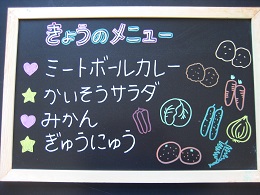 きょうのメニュー
ミートボールカレー
かいそうサラダ
みかん
ぎゅうにゅう